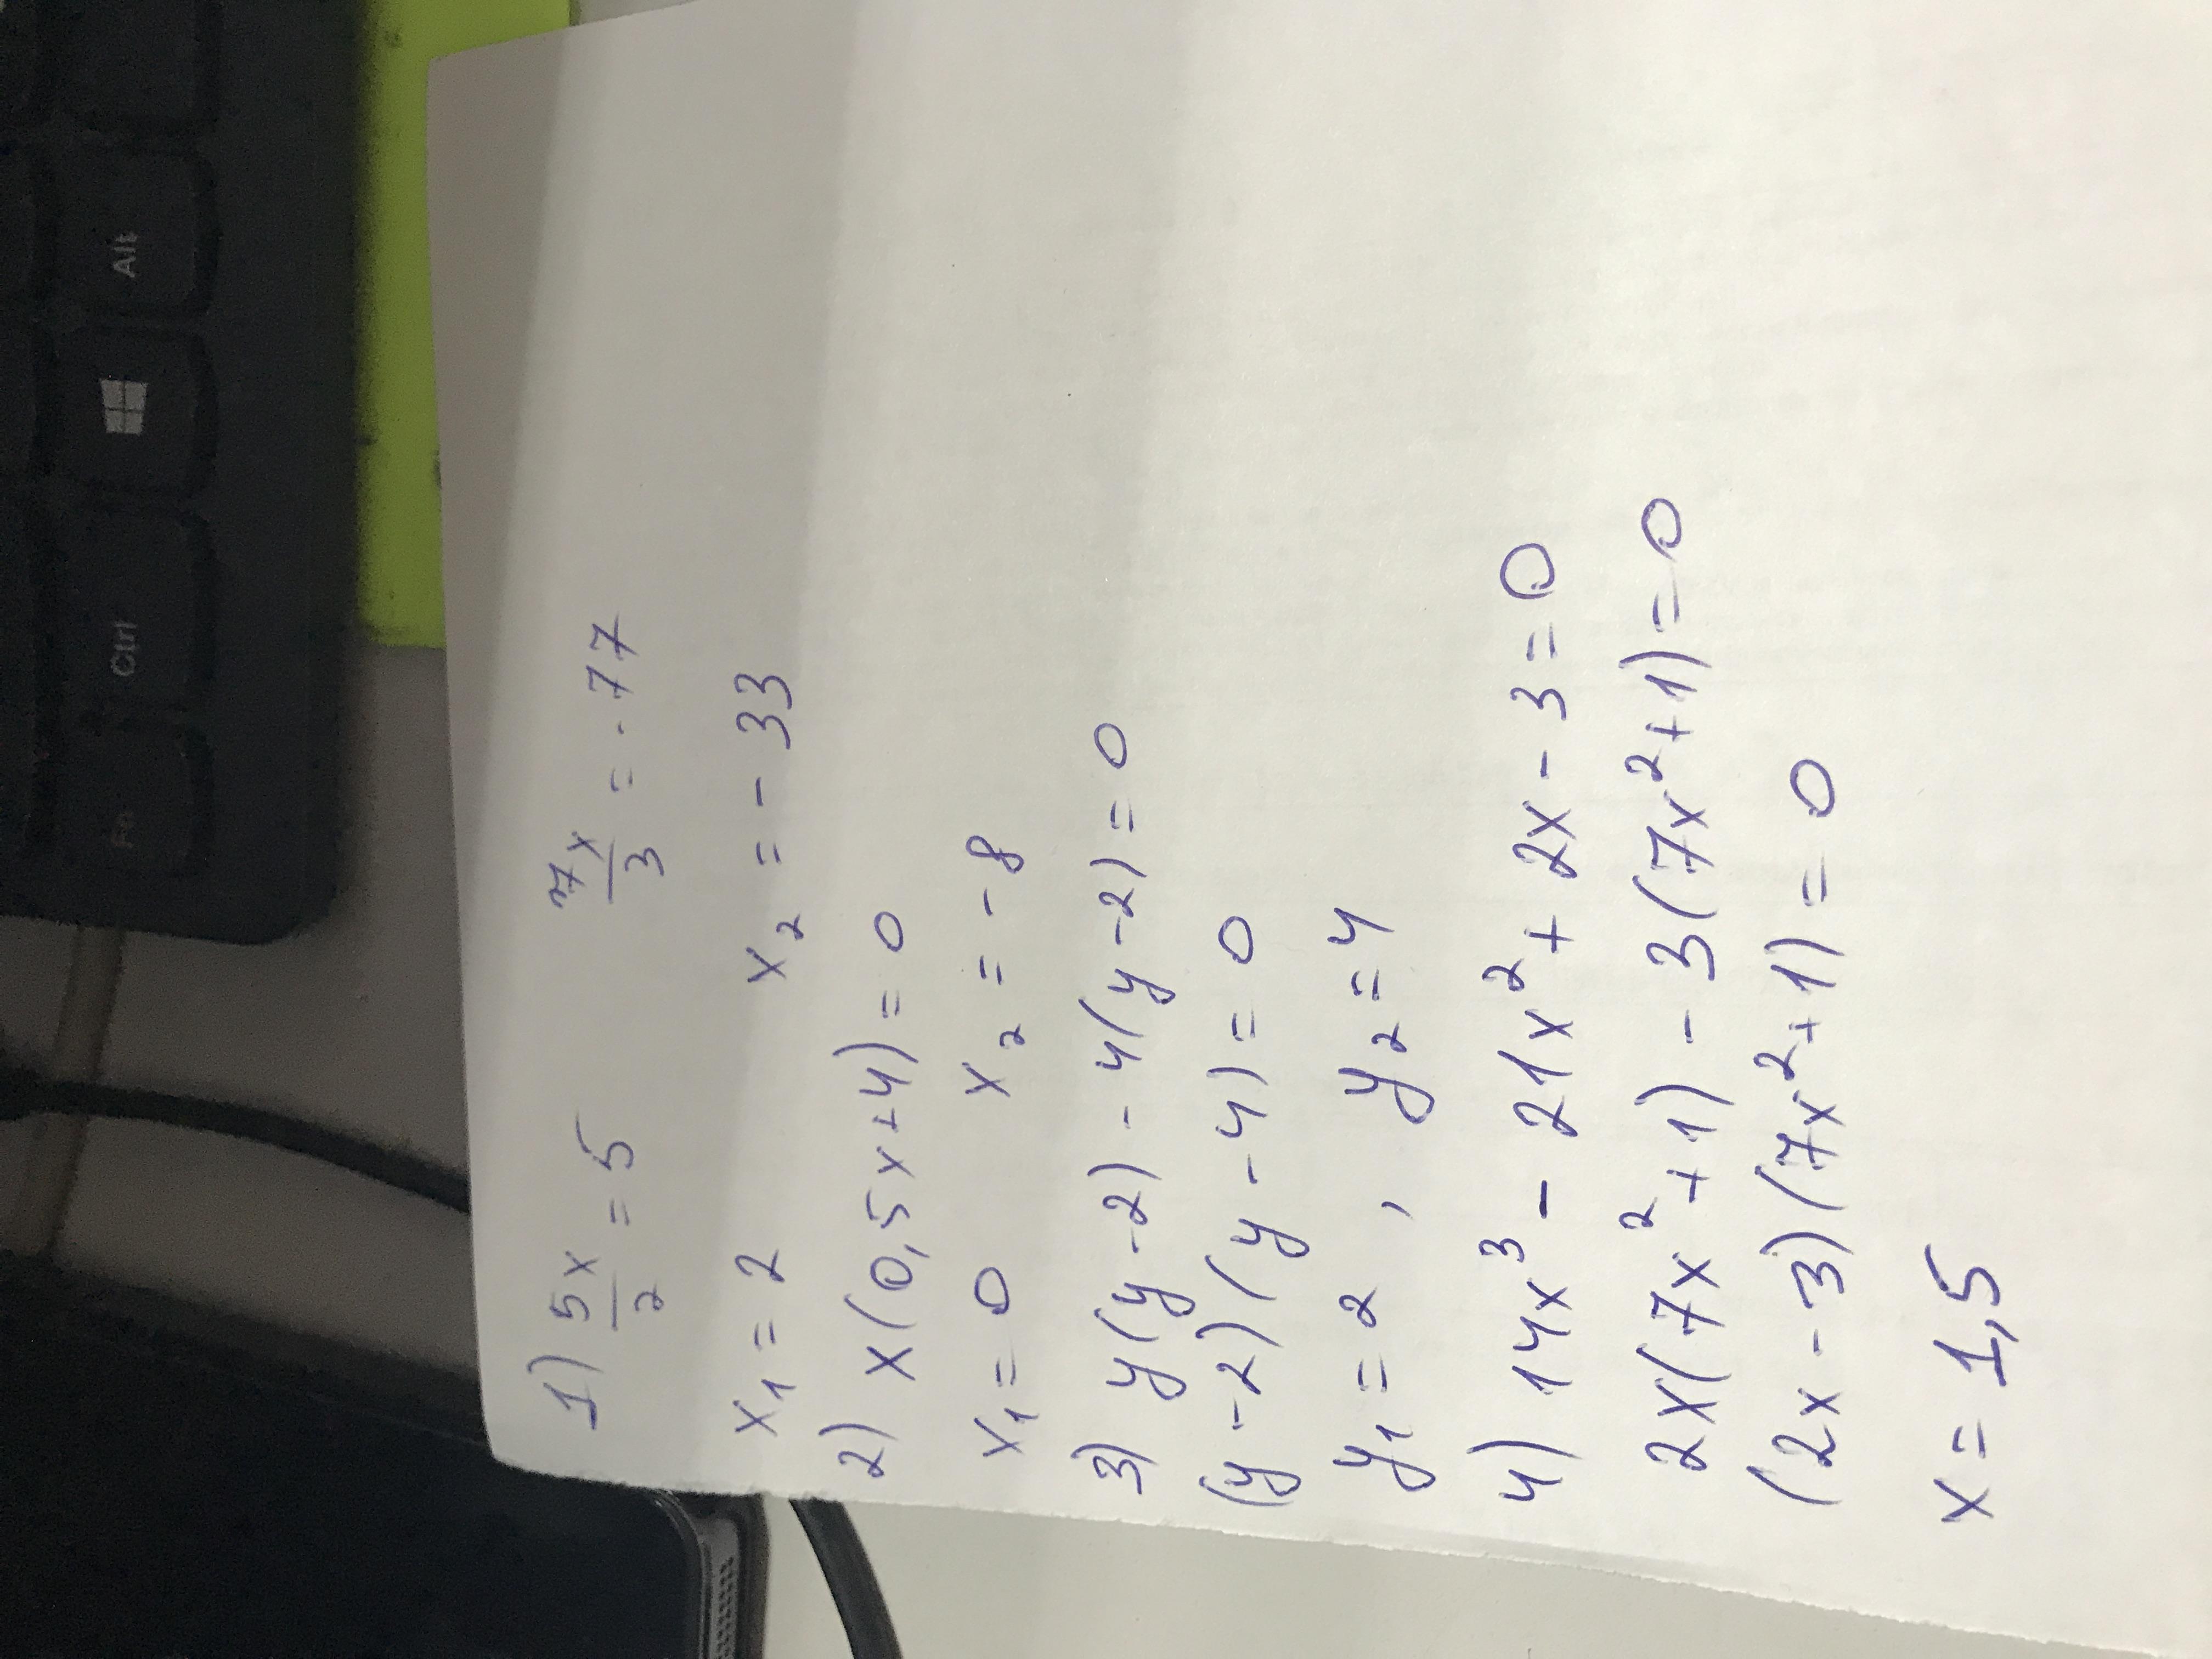 Fn Ctrl Alt
1) 5x/2 = 5 7x/3 = -77
x₁ = 2 x₂ = - 33
2) x(0,5x+4) = 0
x₁ = 0 x₂ = - 8
3) y(y-2) - 4(y-2) = 0
(y-2)(y-4) = 0
y₁ = 2 , y₂ = 4
4) 14x³ - 21x² + 2x - 3 = 0
2x(7x²+1) - 3(7x²+1) = 0
(2x-3)(7x²+1) = 0
x = 1,5